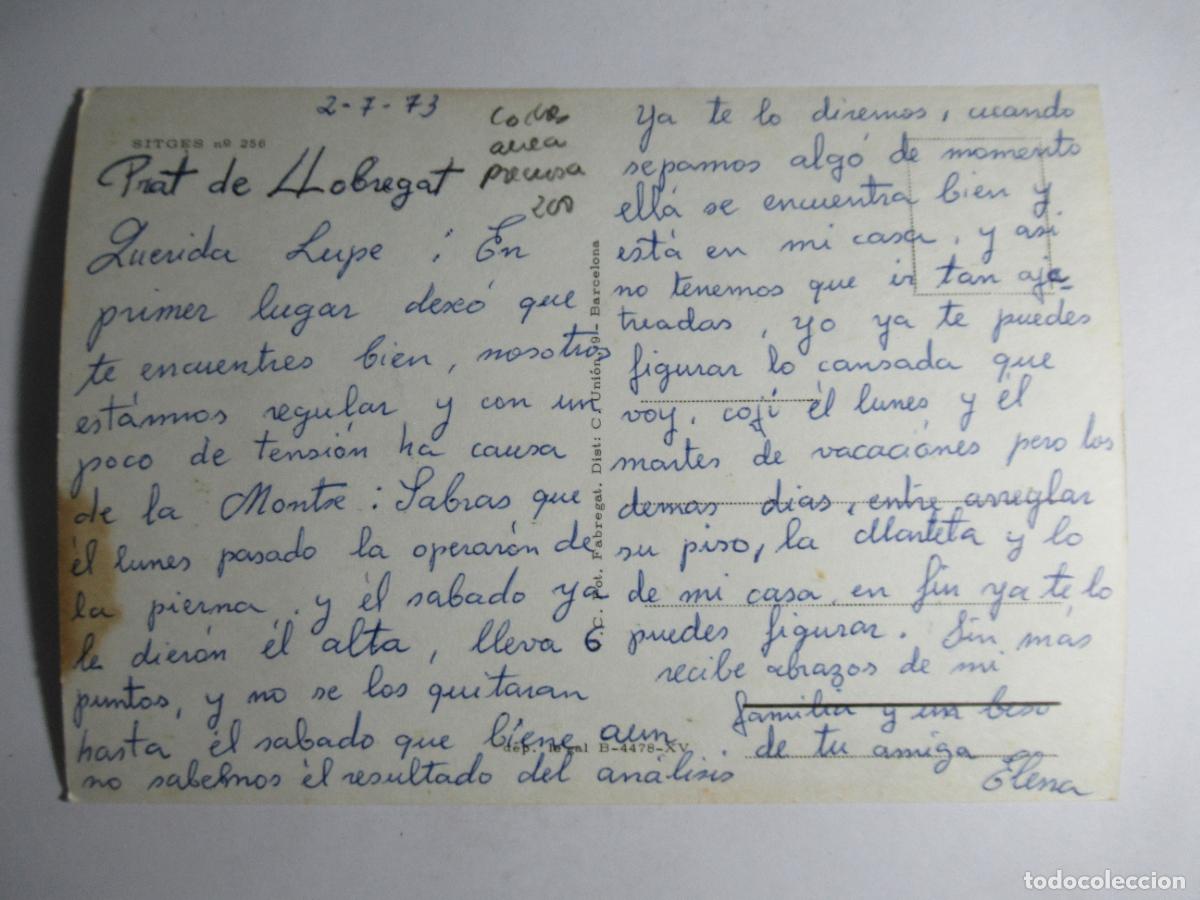 2-7-73
SITGES nº 256
Prat de Llobregat
200
Querida Lupe : En
primer lugar dexeó que
te encuentres bien, nosotros
estámmos regular y con un
poco de tensión ha causa
de la Montse : Sabras que
él lunes pasado la operarón de
la pierna, y él sabado ya
le dierón él alta, lleva 6
puntos, y no se los quitaran
hasta él sabado que biene aun
no sabemnos él resultado del análisis
C. Fot. Fabregat. Dist: C. Unión, 9 - Barcelona
dep. legal B-4478-XV
Ya te lo diremos, cuando
sepamos algó de momento
ellá se encuentra bien y
está en mi casa, y asi
no tenemos que ir tan aje-
treadas, yo ya te puedes
figurar lo cansada que
voy, cojí él lunes y él
martes de vacaciónes pero los
demas dias, entre arreglar
su piso, la Marteta y lo
de mi casa, en fin ya te lo
puedes figurar. Sin más
recibe abrazos de mi
familia y un beso
de tu amiga
Elena
todocoleccion